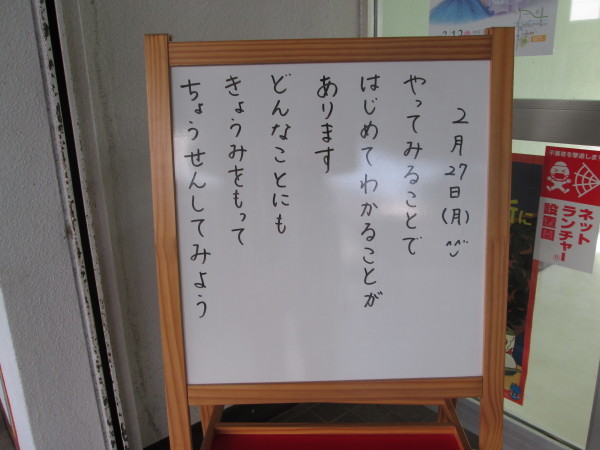 2月27日(月)^^
やってみることで
はじめてわかることが
あります
どんなことにも
きょうみをもって
ちょうせんしてみよう
不審者を撃退します
ネット
ランチャー
設置園